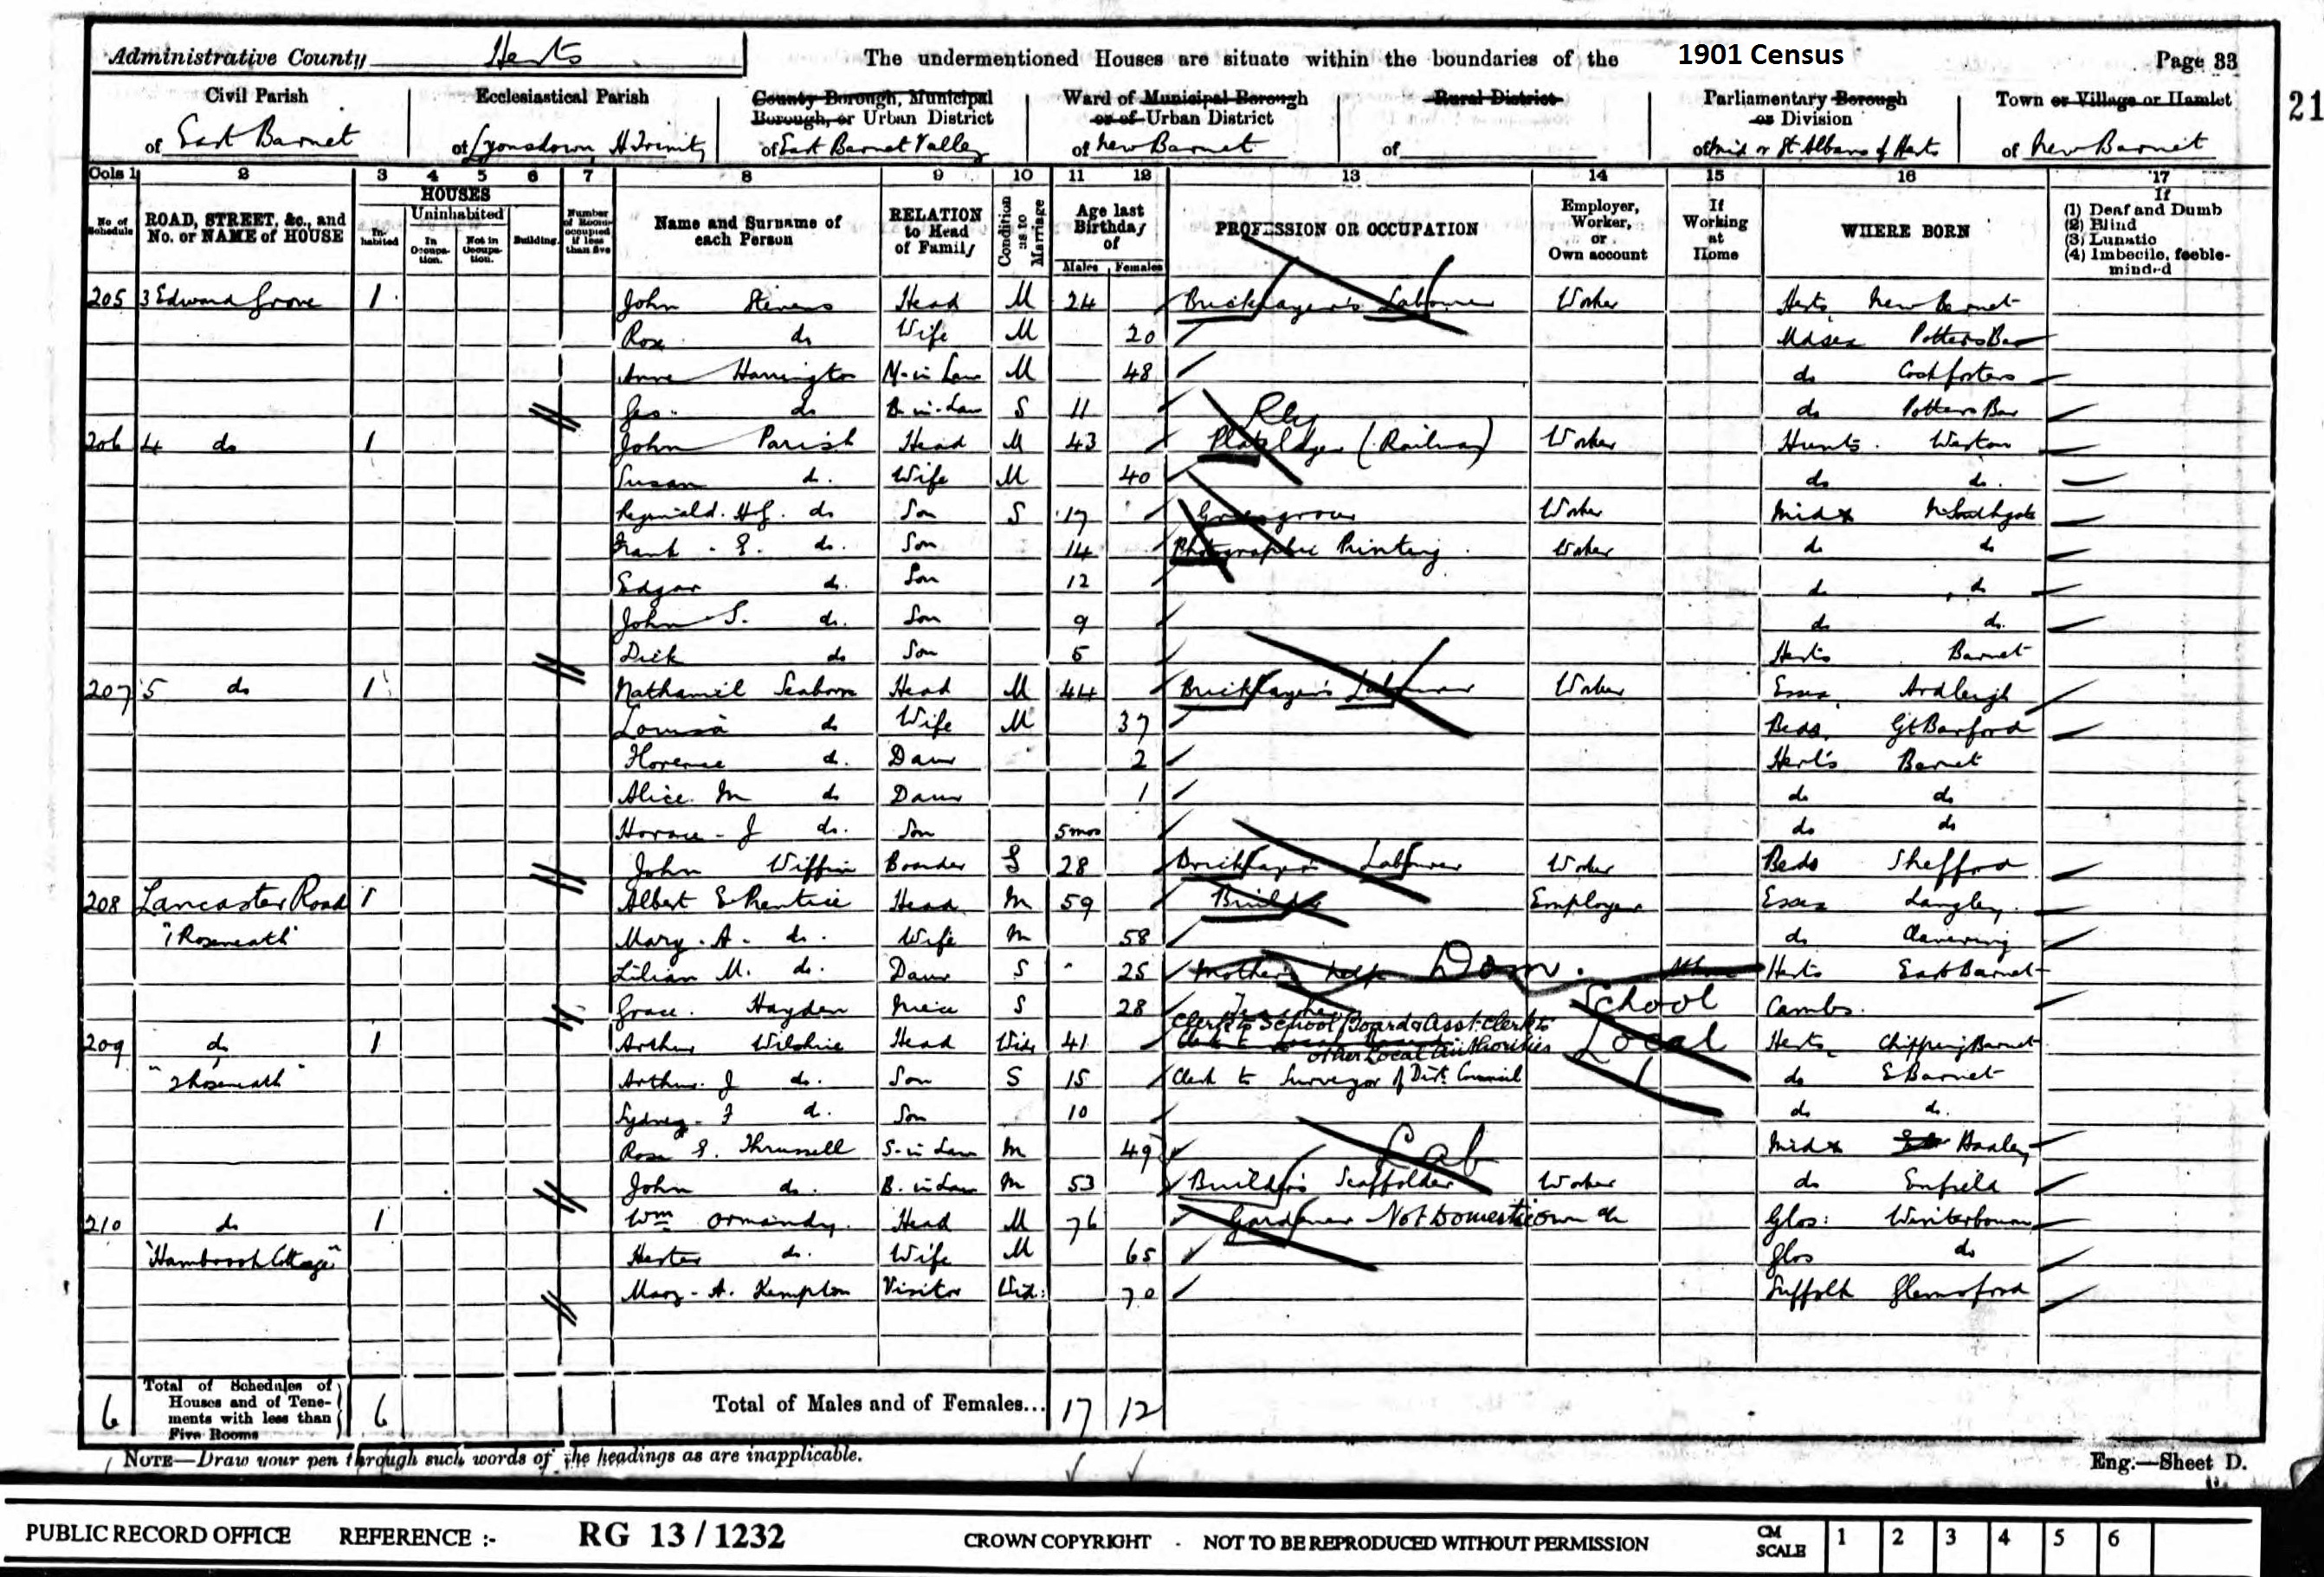 Administrative County Herts The undermentioned Houses are situate within the boundaries of the 1901 Census Page 33
Civil Parish Ecclesiastical Parish County Borough, Municipal Borough, or Urban District Ward of Municipal Borough or of Urban District Rural District Parliamentary Borough or Division Town or Village or Hamlet 21
of East Barnet of Lyonsdown H. Trinity of East Barnet Valley of New Barnet of of Mid or St. Albans of Herts of New Barnet
Cols 1 2 3 4 5 6 7 8 9 10 11 12 13 14 15 16 17
No. of Schedule ROAD, STREET, &c., and No. or NAME of HOUSE HOUSES Inhabited Uninhabited In Occupation. Not in Occupation. Building. Number of Rooms occupied if less than five Name and Surname of each Person RELATION to Head of Family Condition as to Marriage Age last Birthday of Males Females PROFESSION OR OCCUPATION Employer, Worker, or Own account If Working at Home WHERE BORN If (1) Deaf and Dumb (2) Blind (3) Lunatic (4) Imbecile, feeble-minded
205 3 Edward Grove 1 John Stevens Head M 24 Bricklayer's Labourer Worker Herts New Barnet
Rose do Wife M 20 Midsex Potters Bar
Anne Harrington M-in Law M 48 do Cockfosters
Geo. do B-in-Law S 11 do Potters Bar
Rly
206 4 do 1 John Parish Head M 43 Platelayer (Railway) Worker Hunts. Weston
Susan do. Wife M 40 do do.
Reginald. H.G. do Son S 17 Greengrocer Worker Midx N. Southgate
Frank . E. do. Son 14 Photographic Printing . Worker do do
Edgar do. Son 12 do do
John S. do. Son 9 do do.
Dick do Son 5 Herts Barnet
207 5 do 1 Nathaniel Seaborn Head M 44 Bricklayer's Labourer Worker Essex Ardleigh
Louisa do Wife M 37 Beds. Gt Barford
Florence do. Daur 2 Herts Barnet
Alice. M do Daur 1 do do
Horace - J do. Son 5 mos do do
John Wiffin Boarder S 28 Bricklayer's Labourer Worker Beds Shefford
208 Lancaster Road 1 Albert E Prentice Head M 59 Builder Employer Essex Langley
"1 Roseneath" Mary. A. do. Wife M 58 do Clavering
Lilian M. do. Daur S 25 Mother's help Dom. Herts East Barnet
Grace. Hayden Niece S 28 Teacher School Cambs.
Clerk to School Board & Asst. Clerk to
209 do 1 Arthur Wilshire Head Widr 41 other Local Authorities Local Herts Chipping Barnet
"2 Roseneath" Arthur. J do. Son S 15 Clerk to Surveyor of Dist. Council do E Barnet
Sydney. F d. Son 10 do do.
Rose E. Thrussell S-in Law M 49 Midx Hadley
Lab
John do. B. in Law M 53 Builder's Scaffolder Worker do Enfield
210 do 1 Wm Ormandy. Head M 76 Gardener Not Domestic own ac Glos: Winterbourn
"Hambrook Cottage" Hester do. Wife M 65 Glos do
Mary - A. Kempton Visitor Wid: 70 Suffolk Glemsford
6 Total of Schedules of Houses and of Tenements with less than Five Rooms 6 Total of Males and of Females... 17 12
NOTE—Draw your pen through such words of the headings as are inapplicable. Eng.—Sheet D.
PUBLIC RECORD OFFICE REFERENCE :- RG 13 / 1232 CROWN COPYRIGHT . NOT TO BE REPRODUCED WITHOUT PERMISSION CM SCALE 1 2 3 4 5 6